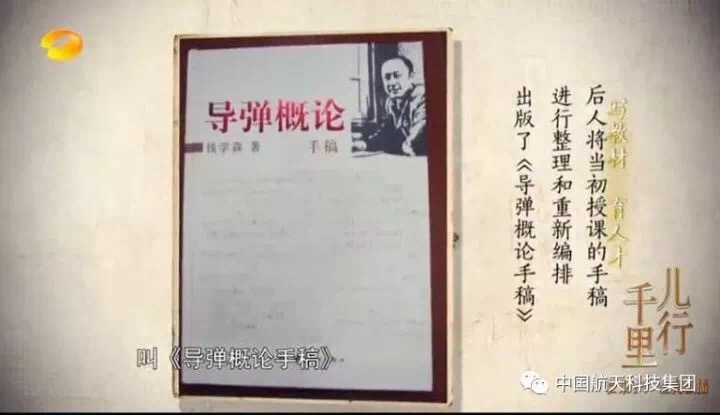 导弹概论
钱学森 著
手稿
写教材 育人才
后人将当初授课的手稿
进行整理和重新编排
出版了《导弹概论手稿》
儿行
千里
叫《导弹概论手稿》
中国航天科技集团